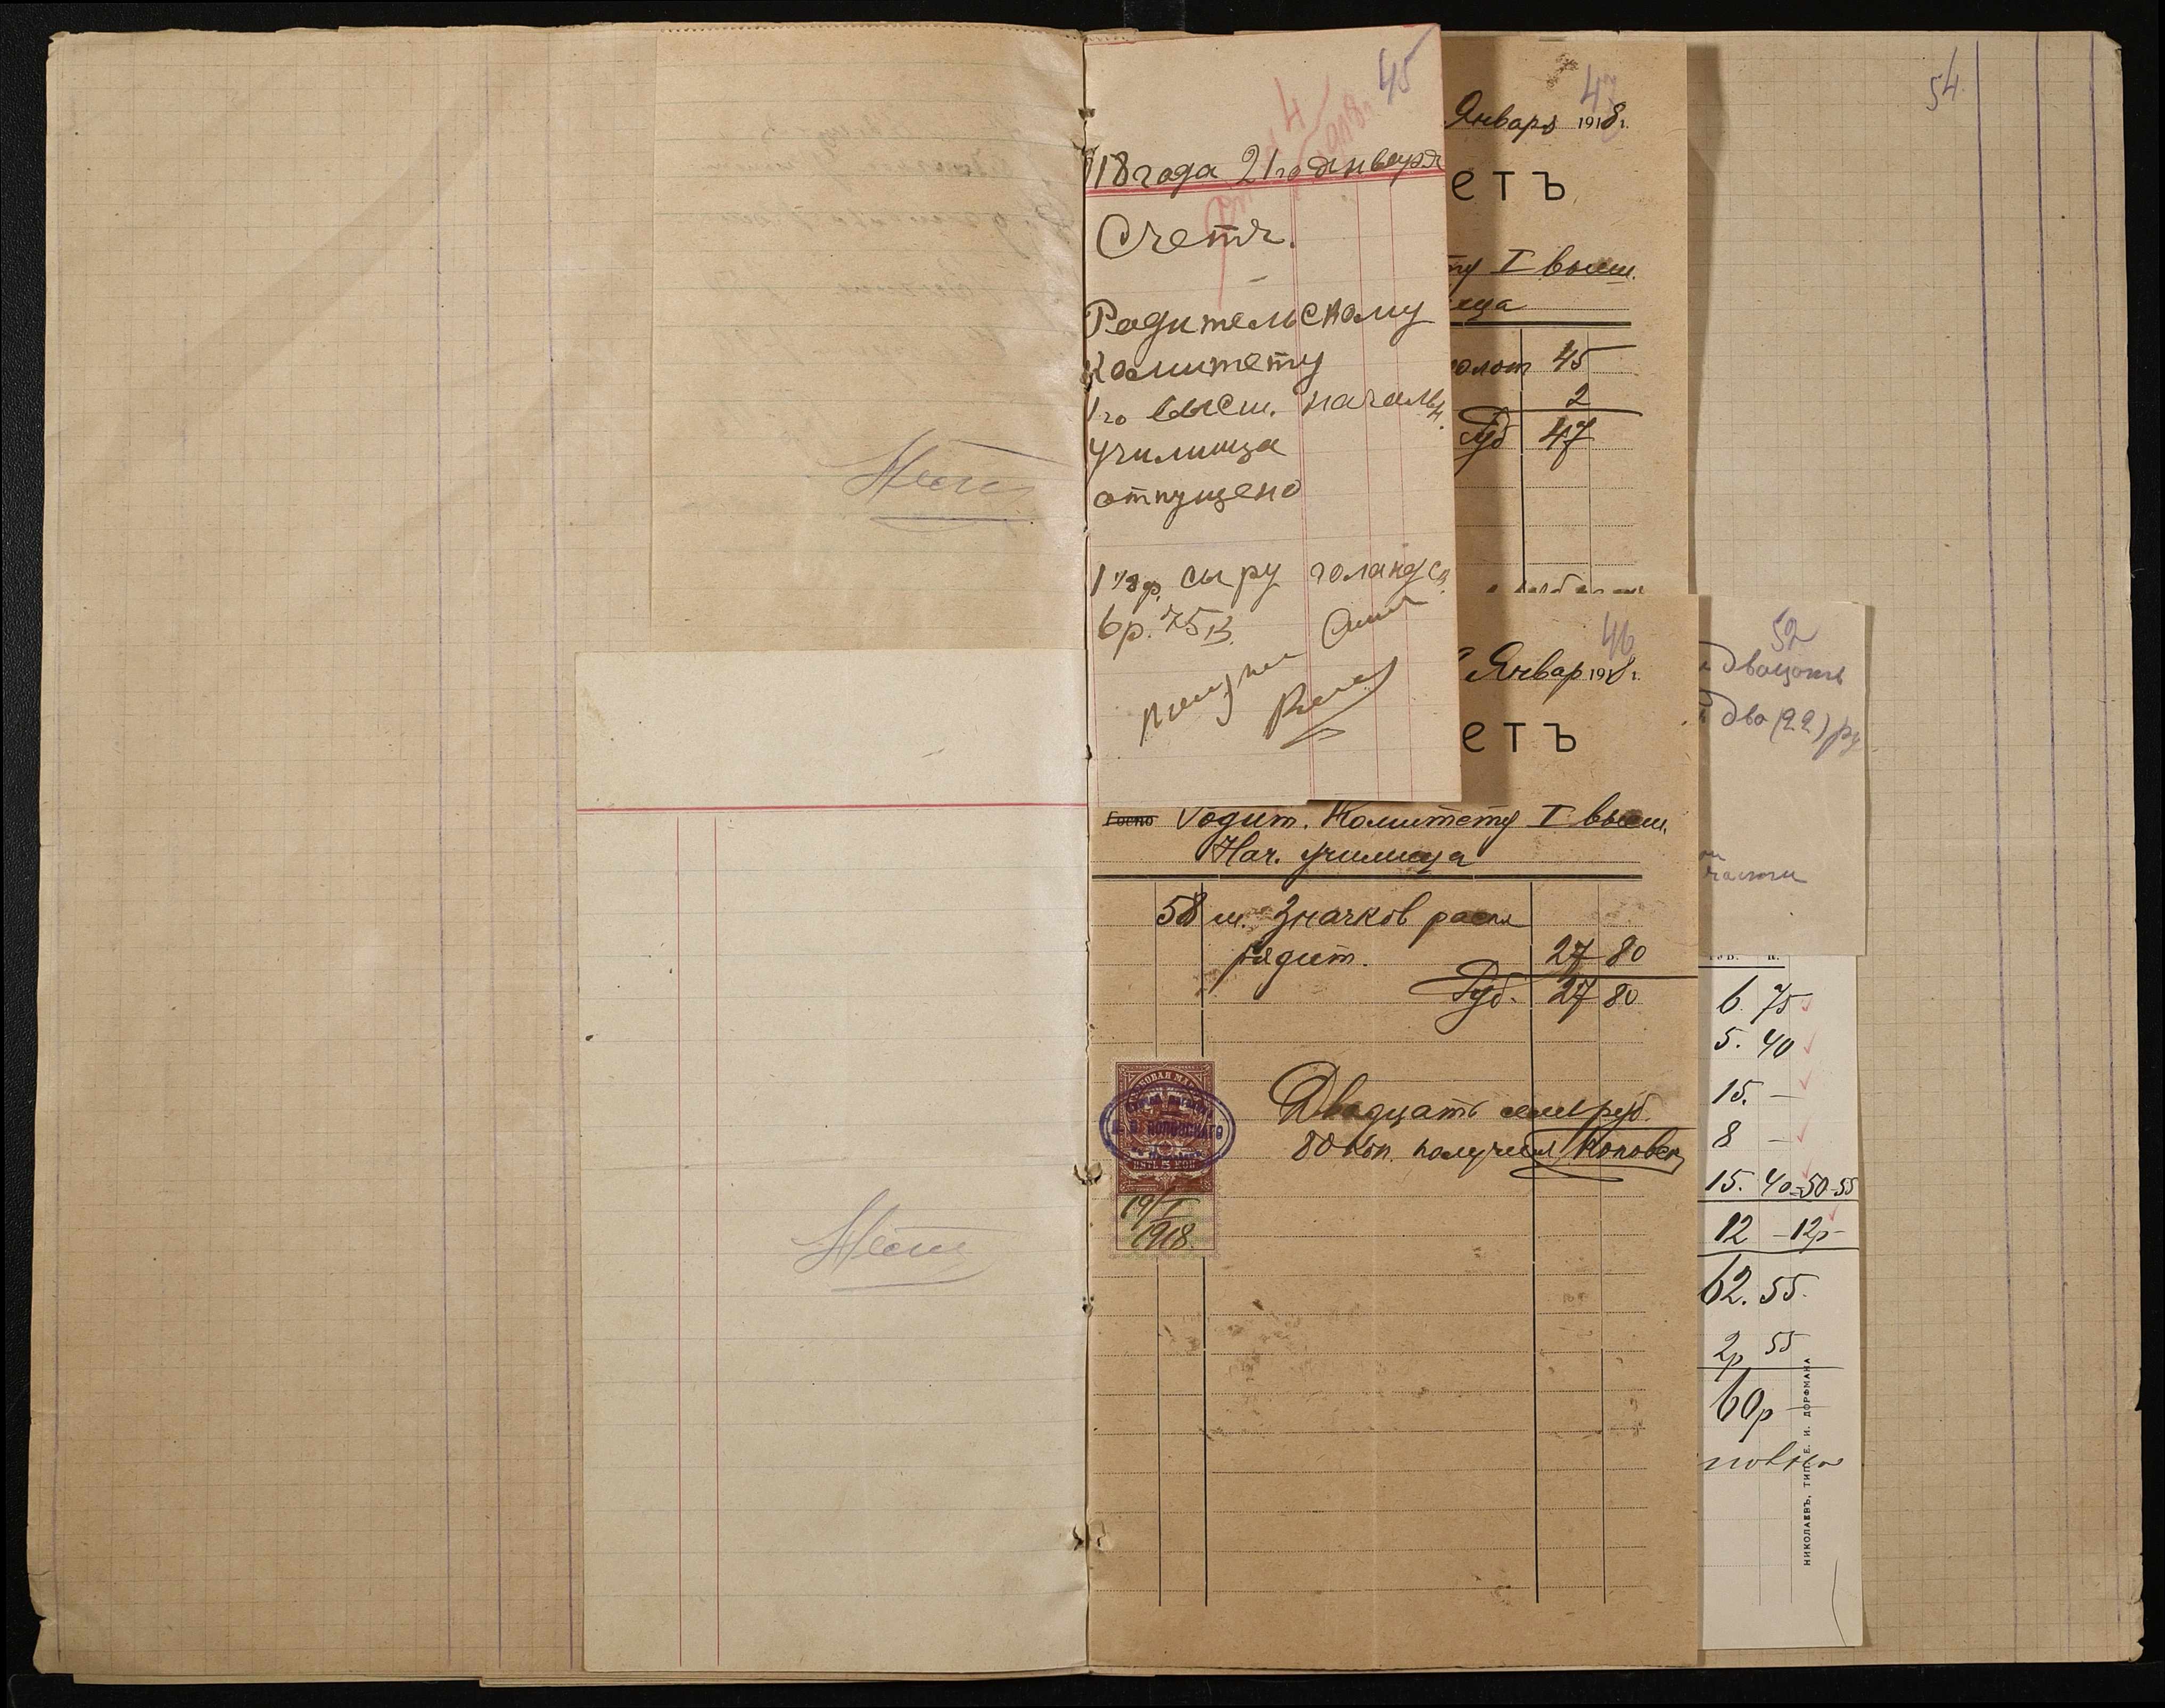 54.
45
4
918 года 21го января
Счетъ.
Родительскому
Комитету
1го высш. начальн.
училища
отпущено
1 1/8 ф. сыру голандск
6р. 75 к.
47
Январь 1918 г.
етъ
ту I высш.
ища
45
2
Руб 47
46
Январ 1918 г.
етъ
Госпо Родит. Комитету I высш.
Нач. училища
58 ш. Значков распо
рядит. 27 80
Руб. 27 80
Двадцать семь руб.
80 коп. получил
ПЯТЬ 5 КОП.
19/I
1918.
52
двацать
два (22) ру
части
6. 75
5. 40
15. —
8 —
15. 40 - 50-55
12 - 12р -
62. 55.
2р 55
60р —
НИКОЛАЕВЪ, ТИП. Е. И. ДОРФМАНА